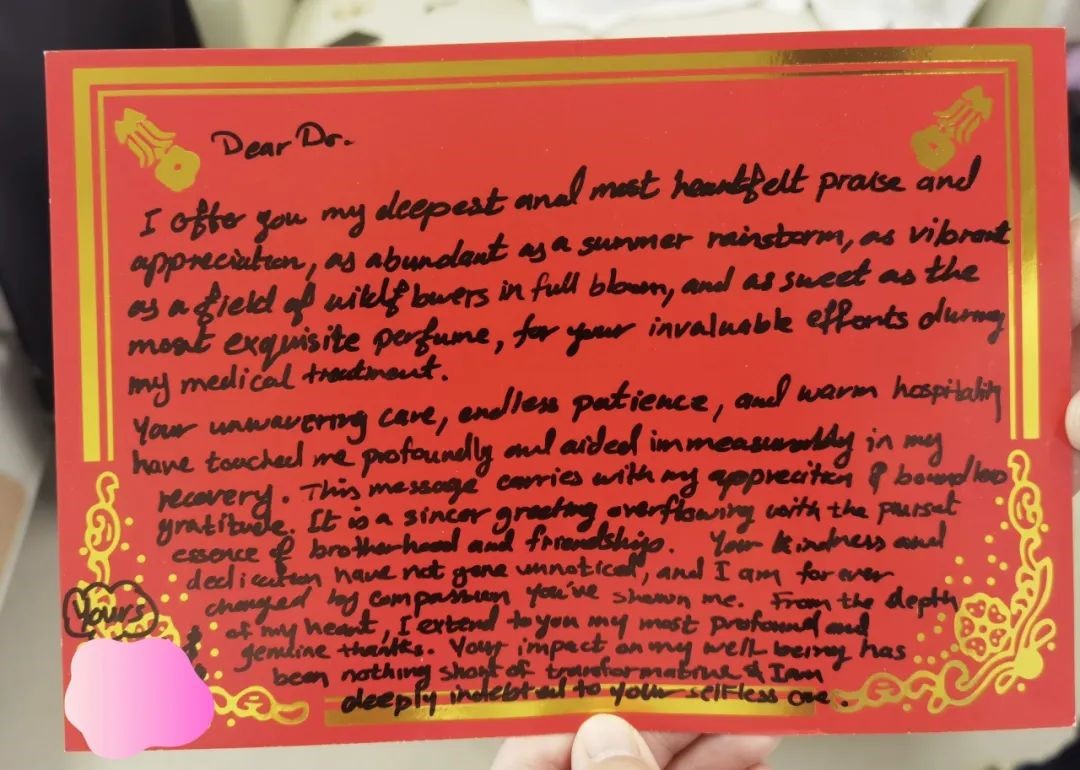 Dear Dr.
I offer you my deepest and most heartfelt praise and
appreciation, as abundant as a summer rainstorm, as vibrant
as a field of wildflowers in full bloom, and as sweet as the
most exquisite perfume, for your invaluable efforts during
my medical treatment.
Your unwavering care, endless patience, and warm hospitality
have touched me profoundly and aided immeasurably in my
recovery. This message carries with my appreciton & boundless
gratitude. It is a sincer greeting overflowing with the purest
essence of brotherhood and friendship. Your kindness and
dedication have not gone unnoticed, and I am forever
changed by compassion you've shown me. From the depth
of my heart, I extend to you my most profound and
genuine thanks. Your impact on my well being has
been nothing short of transformative & I am
deeply indebted to your selfless care.
Yours